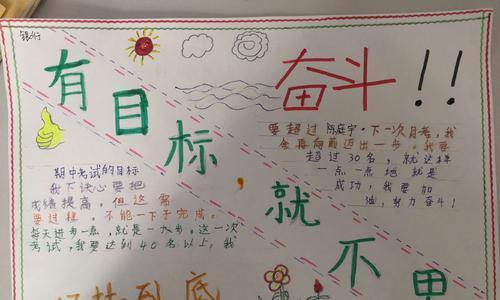 银行
有目标,就不用
奋斗!!
期中考试的目标
我下决心要把
成绩提高,但这需
要过程,不能一下子完成。
每天进步一点,就是一大步。这一次
考试,我要达到40名以上,我
要超过陈庭宇。下一次月考,我
会再向前迈出一步。我要
超过30名,就这样
一点一点地就是
成功,我要加
油,努力奋斗!
到底